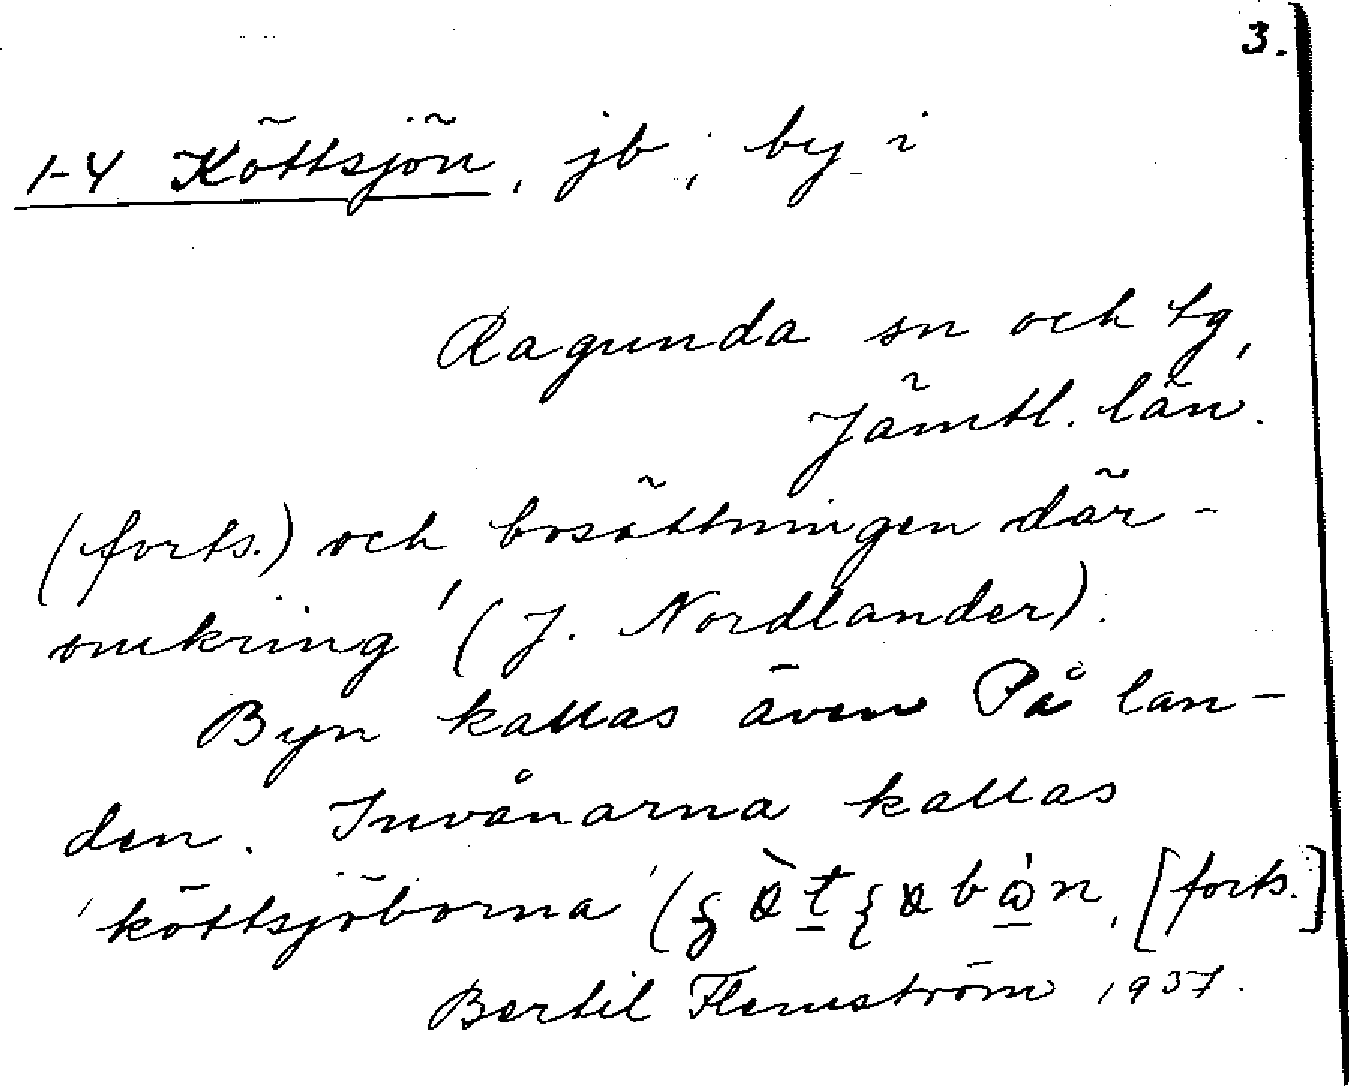 3.
1-4 Köttsjön, jb, by i
Ragunda sn och tg,
Jämtl. län.
(forts.) och bosättningen där-
omkring' (J. Nordlander).
Byn kallas även På lan-
den. Invånarna kallas
'köttsjöborna' ( [forts.]
Bertil Flemström 1937.